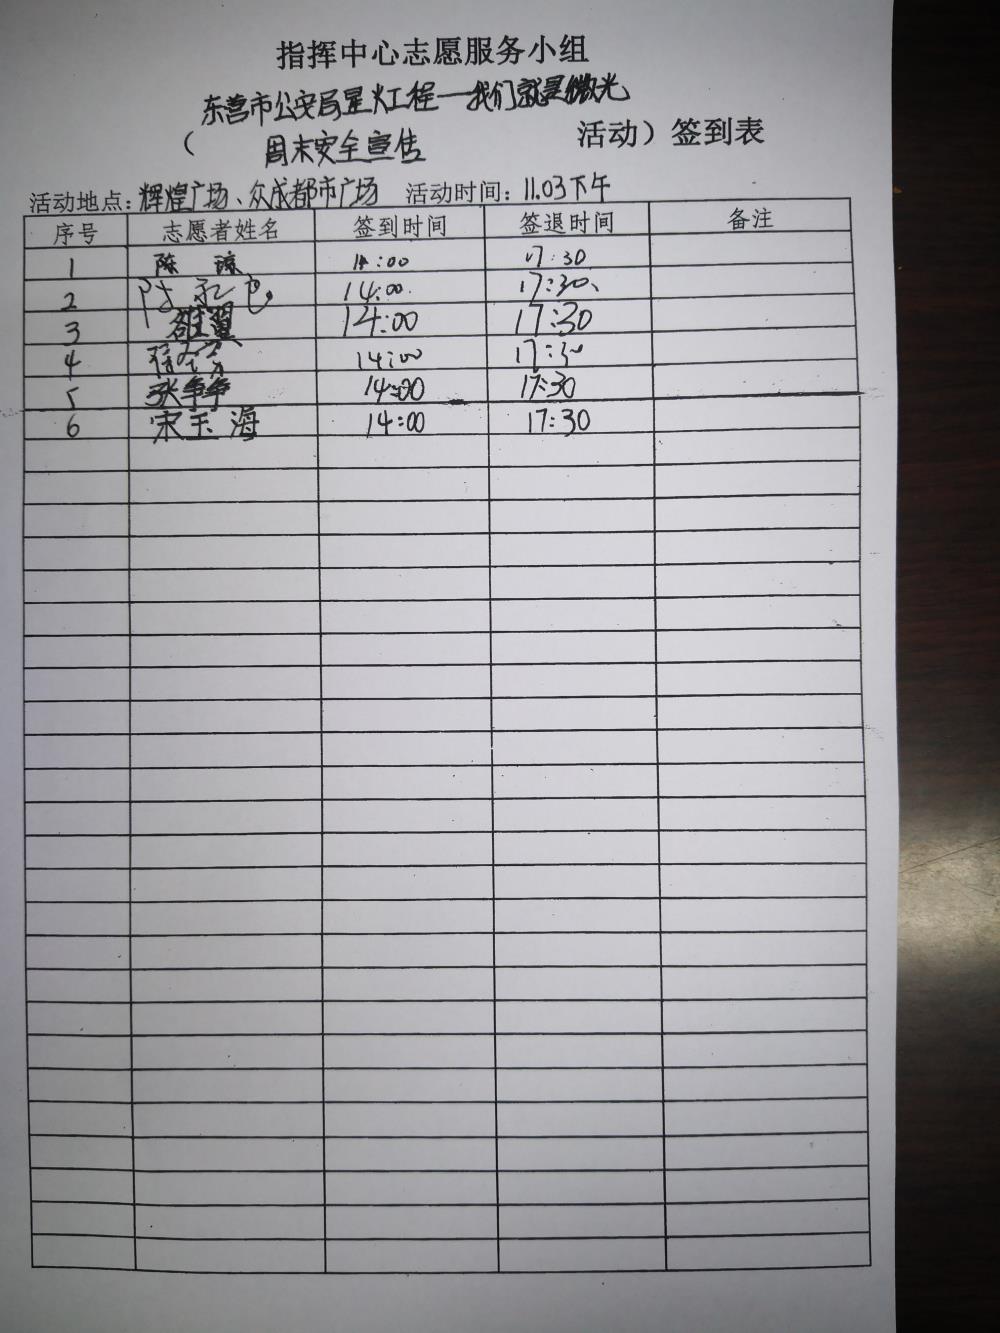 指挥中心志愿服务小组
东营市公安局星火工程——我们就是微光
（ 周末安全宣传 活动）签到表
活动地点：辉煌广场、众成都市广场 活动时间：11.03下午
序号 志愿者姓名 签到时间 签退时间 备注
1 陈 琼 14:00 17:30
2 14:00 17:30
3 翟翼 14:00 17:30
4 14:00 17:30
5 张争争 14:00 17:30
6 宋玉海 14:00 17:30